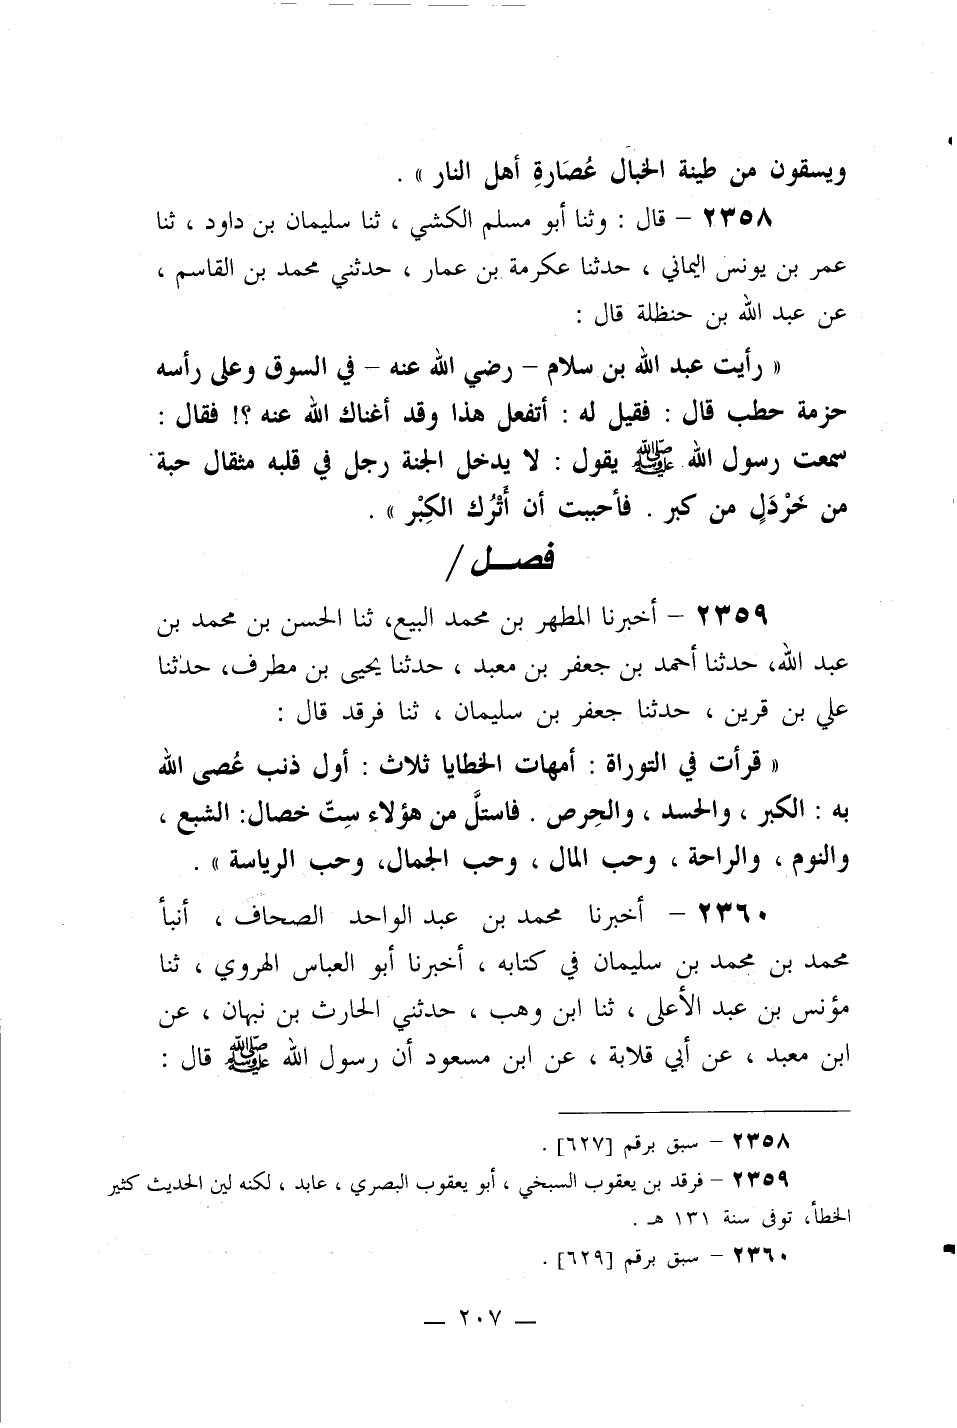 ويسقون من طينة الخبال عُصَارةِ أهل النار » .
٢٣٥٨ – قال : وثنا أبو مسلم الكشي ، ثنا سليمان بن داود ، ثنا
عمر بن يونس اليماني ، حدثنا عكرمة بن عمار ، حدثني محمد بن القاسم ،
عن عبد الله بن حنظلة قال :
« رأيت عبد الله بن سلام – رضي الله عنه – في السوق وعلى رأسه
حزمة حطب قال : فقيل له : أتفعل هذا وقد أغناك الله عنه ؟! فقال :
سمعت رسول الله ﷺ يقول : لا يدخل الجنة رجل في قلبه مثقال حبة
من خَرْدَلٍ من كبر . فأحببت أن أَتْرُك الكِبْر » .
فصــل /
٢٣٥٩ – أخبرنا المطهر بن محمد البيع، ثنا الحسن بن محمد بن
عبد الله، حدثنا أحمد بن جعفر بن معبد ، حدثنا يحيى بن مطرف، حدثنا
علي بن قرين ، حدثنا جعفر بن سليمان ، ثنا فرقد قال :
« قرأت في التوراة : أمهات الخطايا ثلاث : أول ذنب عُصى الله
به : الكبر ، والحسد ، والحِرص . فاستلَّ من هؤلاء سِتّ خصال: الشبع ،
والنوم ، والراحة ، وحب المال ، وحب الجمال، وحب الرياسة » .
٢٣٦٠ – أخبرنا محمد بن عبد الواحد الصحاف ، أنبأ
محمد بن محمد بن سليمان في كتابه ، أخبرنا أبو العباس الهروي ، ثنا
مؤنس بن عبد الأعلى ، ثنا ابن وهب ، حدثني الحارث بن نبهان ، عن
ابن معبد ، عن أبي قلابة ، عن ابن مسعود أن رسول الله ﷺ قال :
٢٣٥٨ – سبق برقم [٦٢٧] .
٢٣٥٩ – فرقد بن يعقوب السبخي ، أبو يعقوب البصري ، عابد ، لكنه لين الحديث كثير
الخطأ، توفى سنة ١٣١ هـ .
٢٣٦٠ – سبق برقم [٦٢٩] .
— ٢٠٧ —